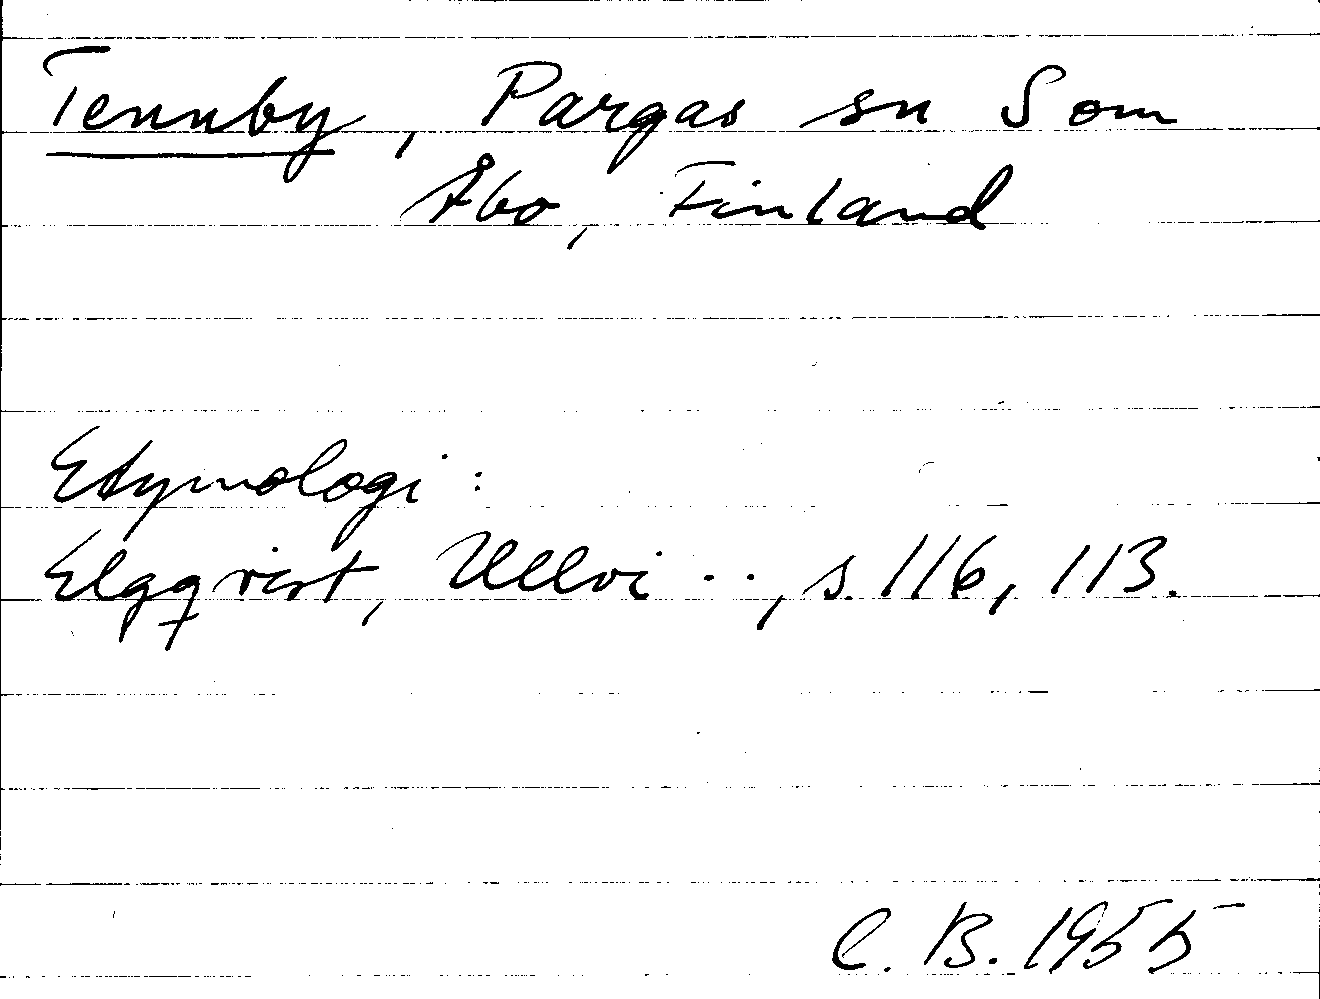 Tennby, Pargas sn S om
Åbo, Finland
Etymologi:
Elgqvist, Ullvi . . , s. 116, 113.
C. B. 1955